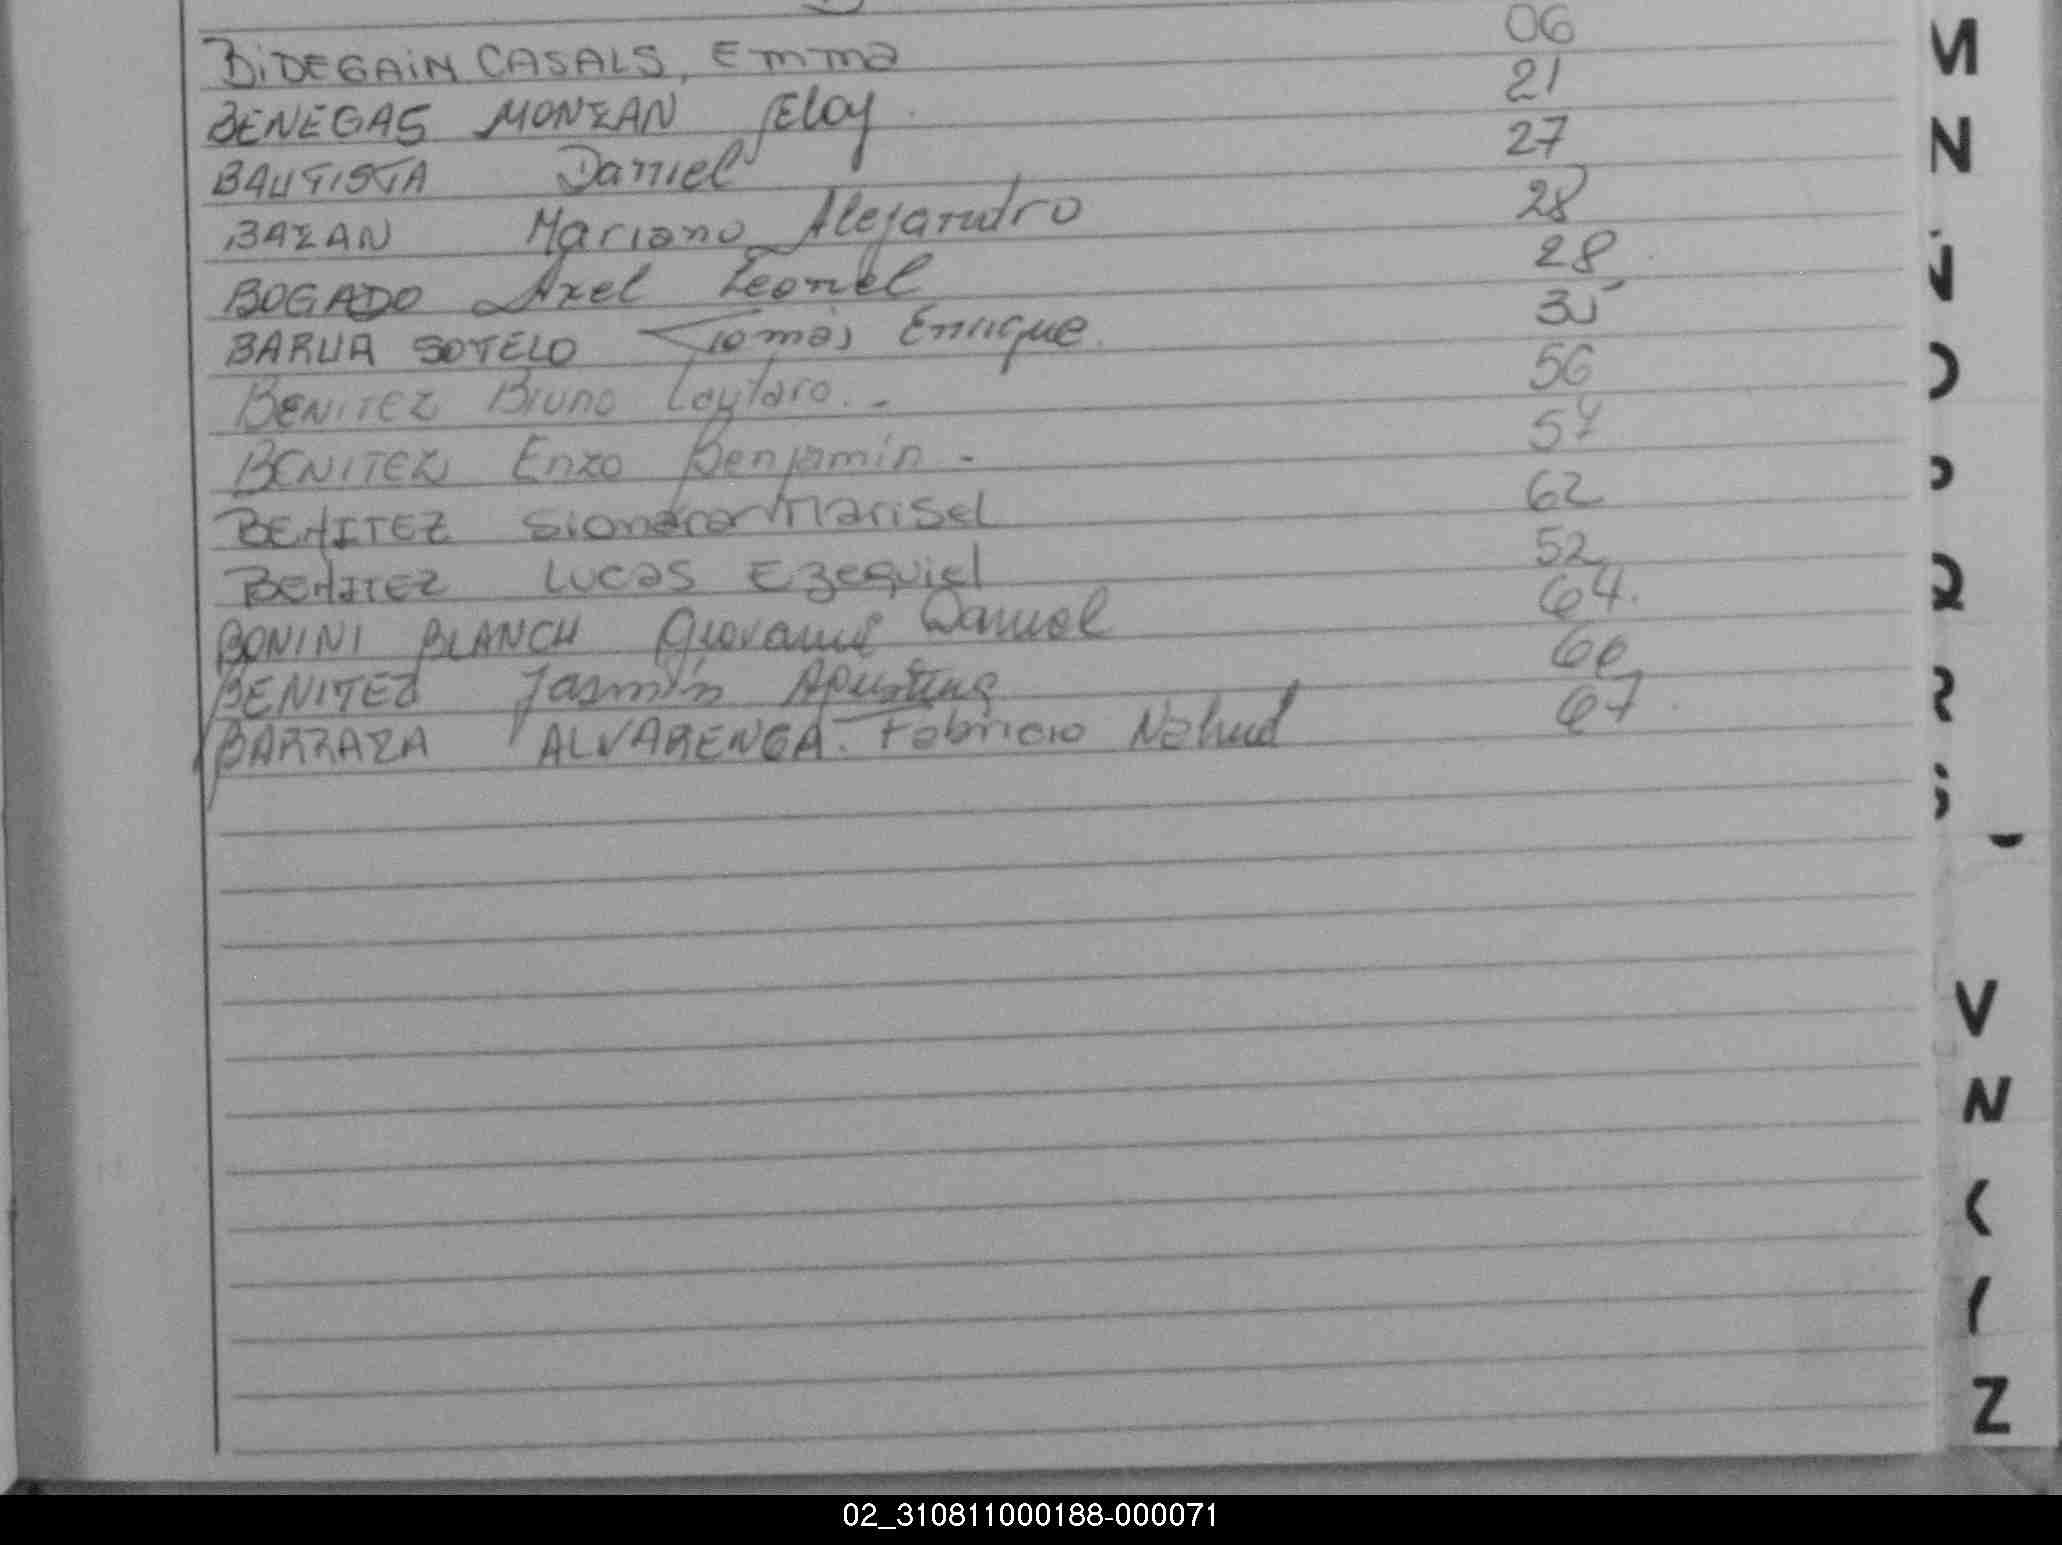 BIDEGAIN CASALS, Emma 06
BENEGAS MONZAN Eloy 21
BAUTISTA Daniel 27
BAZAN Mariano Alejandro 28
BOGADO Axel Leonel 28
BARUA SOTELO Tomás Enrique 35
BENITEZ Bruno Lautaro.- 56
BENITEZ Enzo Benjamín - 57
BENITEZ Marisel 62
BENITEZ Lucas Ezequiel 52
BONINI BLANCH Giovanni Daniel 64.
BENITEZ Jasmín Agustina 66
BARRAZA ALVARENGA. Fabricio Nahud 67
M
N
V
N
Z
02_310811000188-000071